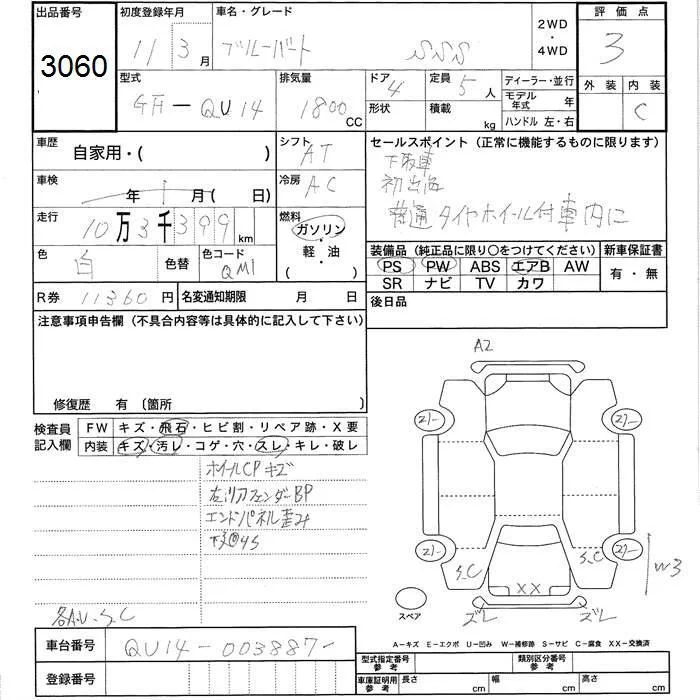 出品番号
3060
初度登録年月
11 3月
車名・グレード
ブルーバード SSS
2WD
・
4WD
評価点
3
外装 内装
C
型式
GF-QU14
排気量
1800 CC
ドア
4
形状
定員
5人
積載
kg
ディーラー・並行
モデル年式 年
ハンドル 左・右
車歴
自家用・( )
シフト
AT
車検
年 月( 日)
冷房
AC
走行
10万3千399 km
燃料
ガソリン
・
軽・油
( )
色
白
色替
色コード
QM1
R券 11360円
名変通知期限 月 日
セールスポイント (正常に機能するものに限ります)
下取車
初出品
普通タイヤホイール付車内に
装備品 (純正品に限り〇をつけてください)
PS PW ABS エアB AW
SR ナビ TV カワ
新車保証書
有・無
後日品
注意事項申告欄 (不具合内容等は具体的に記入して下さい)
修復歴 有 〔箇所 〕
検査員記入欄
FW キズ・飛石・ヒビ割・リペア跡・X要
内装 キズ・汚レ・コゲ・穴・スレ・キレ・破レ
ホイールCPキズ
左リヤフェンダーBP
エンドパネル歪み
下廻サS
各A.U.S.C
A2
S.C
S.C
W3
XX
ズレ
ズレ
スペア
A-キズ E-エクボ U-凹み W-補修跡 S-サビ C-腐食 XX-交換済
車台番号 QU14-003887-
登録番号
型式指定番号 参考
類別区分番号 参考
車庫証明用 参考
長さ cm
幅 cm
高さ cm